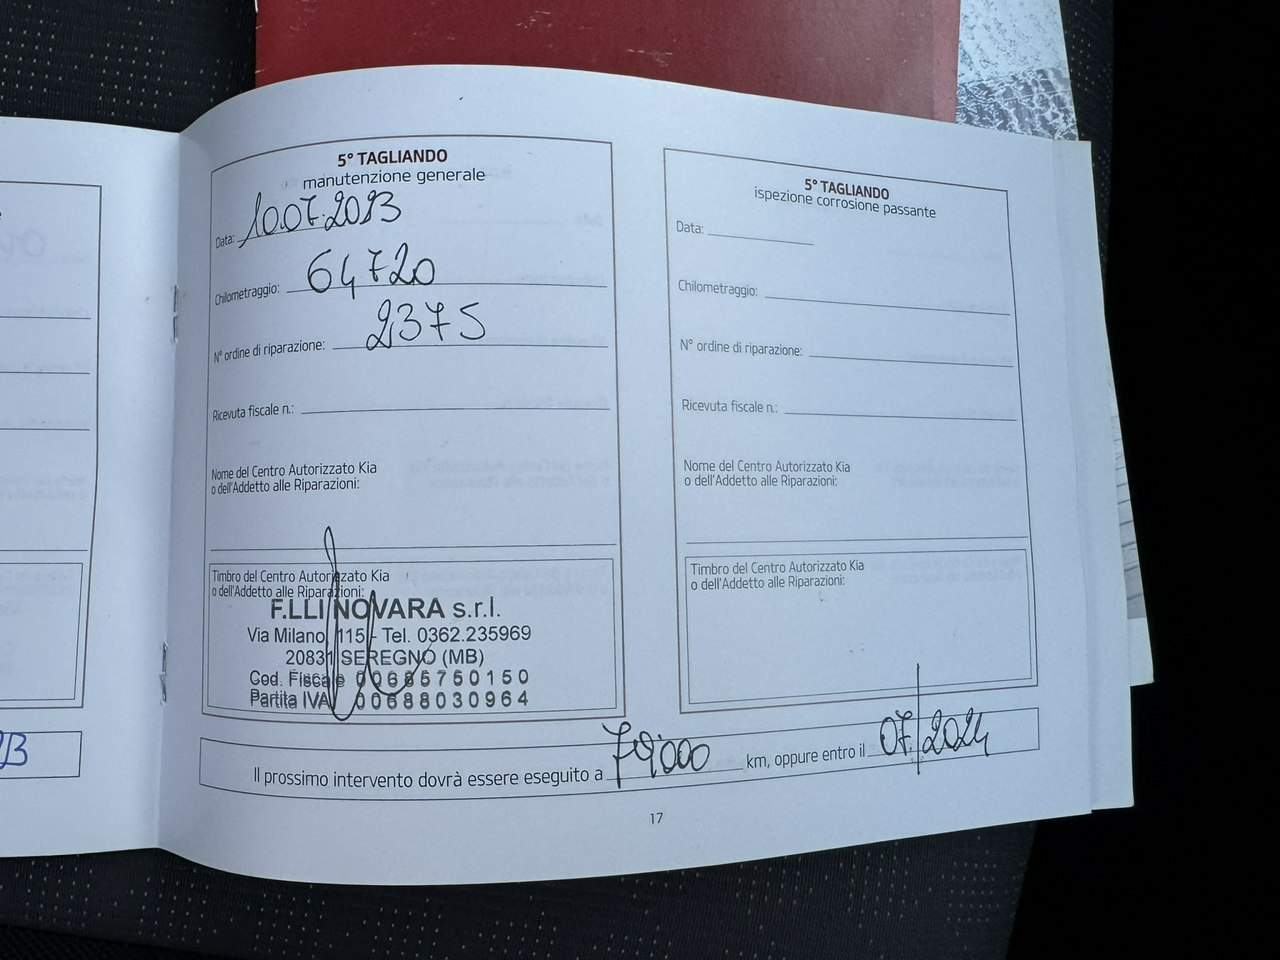 5° TAGLIANDO
manutenzione generale
Data: 10.07.2023
Chilometraggio: 64720
N° ordine di riparazione: 2375
Ricevuta fiscale n.:
Nome del Centro Autorizzato Kia
o dell'Addetto alle Riparazioni:
Timbro del Centro Autorizzato Kia
o dell'Addetto alle Riparazioni:
F.LLI NOVARA s.r.l.
Via Milano, 115 - Tel. 0362.235969
20831 SEREGNO (MB)
Cod. Fiscale 00685750150
Partita IVA 00688030964
5° TAGLIANDO
ispezione corrosione passante
Data:
Chilometraggio:
N° ordine di riparazione:
Ricevuta fiscale n.:
Nome del Centro Autorizzato Kia
o dell'Addetto alle Riparazioni:
Timbro del Centro Autorizzato Kia
o dell'Addetto alle Riparazioni:
Il prossimo intervento dovrà essere eseguito a 79.000 km, oppure entro il 07/2024
17